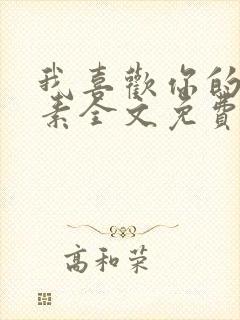 我喜歡你的
素全文免費
高和荣